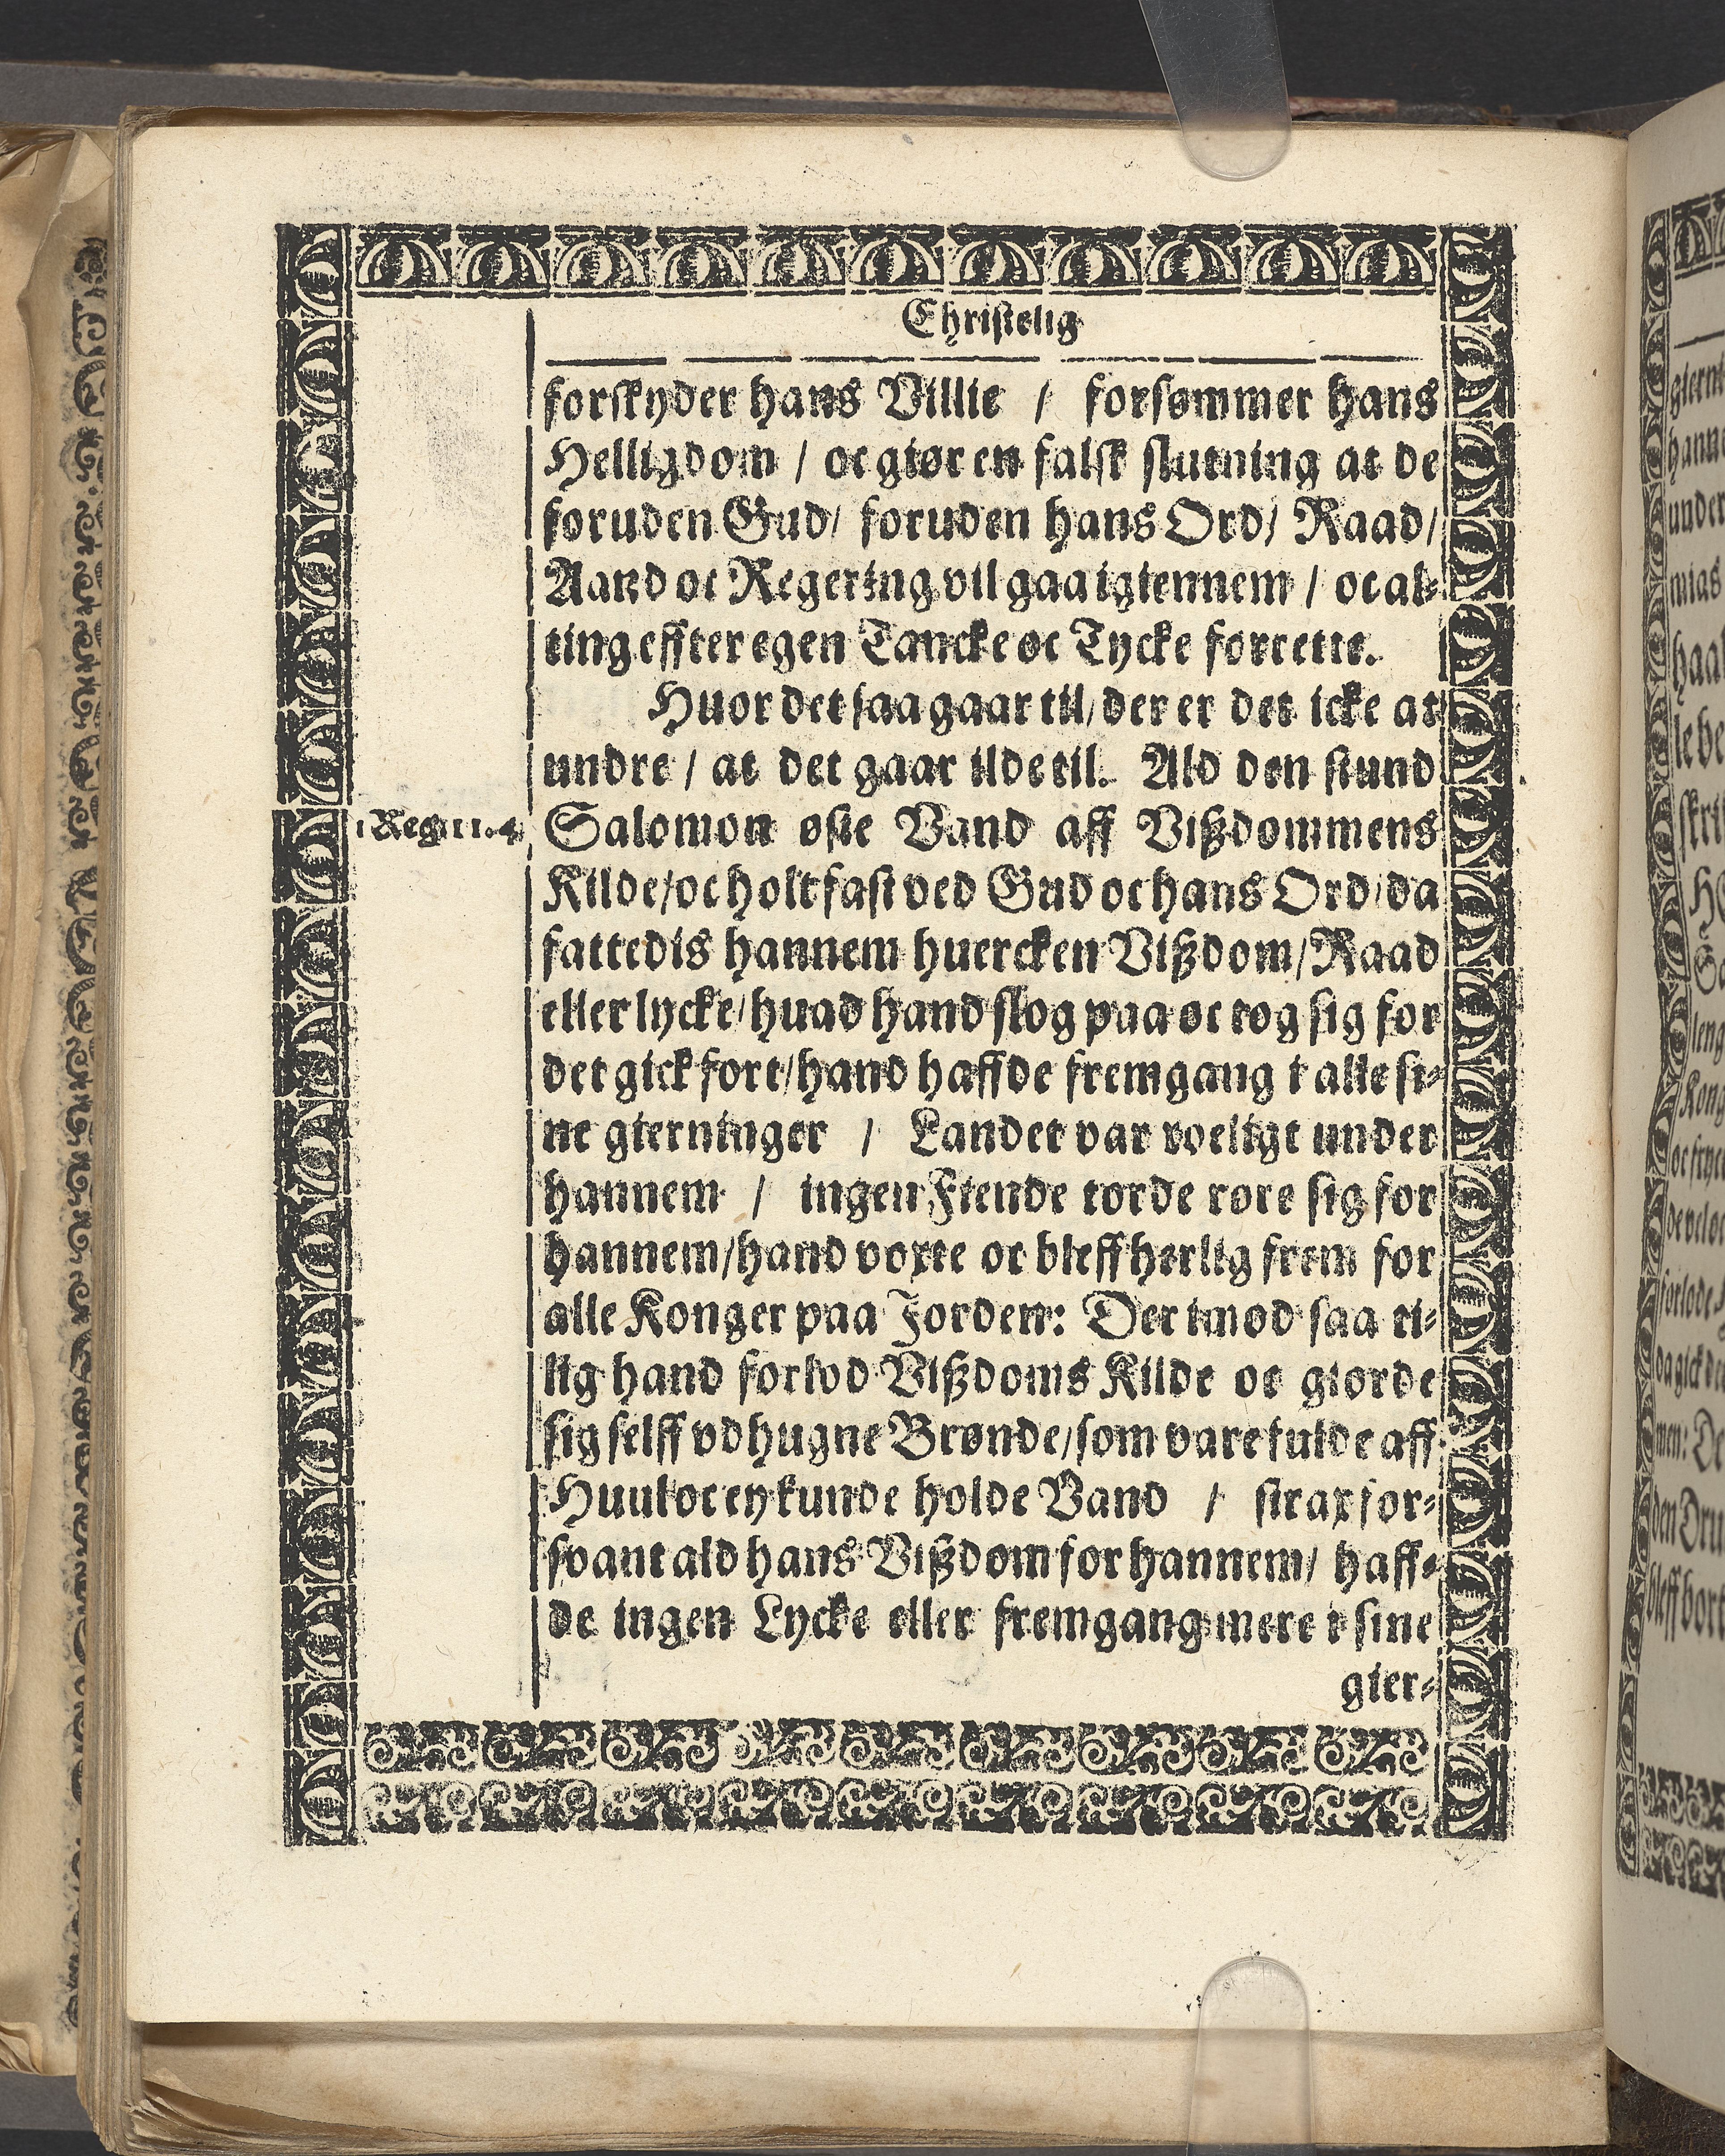 Christelig
forskyder hans Villie / forsømmer hans
Helligdom / oc giør en falsk slutning at de
foruden Gud / foruden hans Ord / Raad /
Aand oc Regering vil gaa igiennem / oc al-
ting effter egen Tancke oc Tycke forrette.
Huor det saa gaar til / der er det icke at
undre / at det gaar ilde til. Ald den stund
1 Reg. 11. 4.
Salomon øste Vand aff Vißdommens
Kilde / oc holt fast ved Gud oc hans Ord / da
fattedis hannem huercken Vißdom / Raad
eller lycke / huad hand slog paa oc tog sig for
det gick fort / hand haffde fremgang i alle si-
ne gierninger / Landet var roeligt under
hannem / ingen Fiende torde røre sig for
hannem / hand voxte oc bleff herlig frem for
alle Konger paa Jorden: Der imod saa ti-
lig hand forlod Vißdoms Kilde oc giorde
sig selff vdhugne Brønde / som vare fulde aff
Huul oc ey kunde holde Vand / strax for-
svant ald hans Vißdom for hannem / haff-
de ingen Lycke eller fremgang mere i sine
gier-